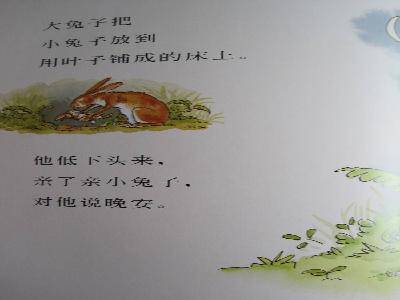 大兔子把
小兔子放到
用叶子铺成的床上。
他低下头来，
亲了亲小兔子，
对他说晚安。